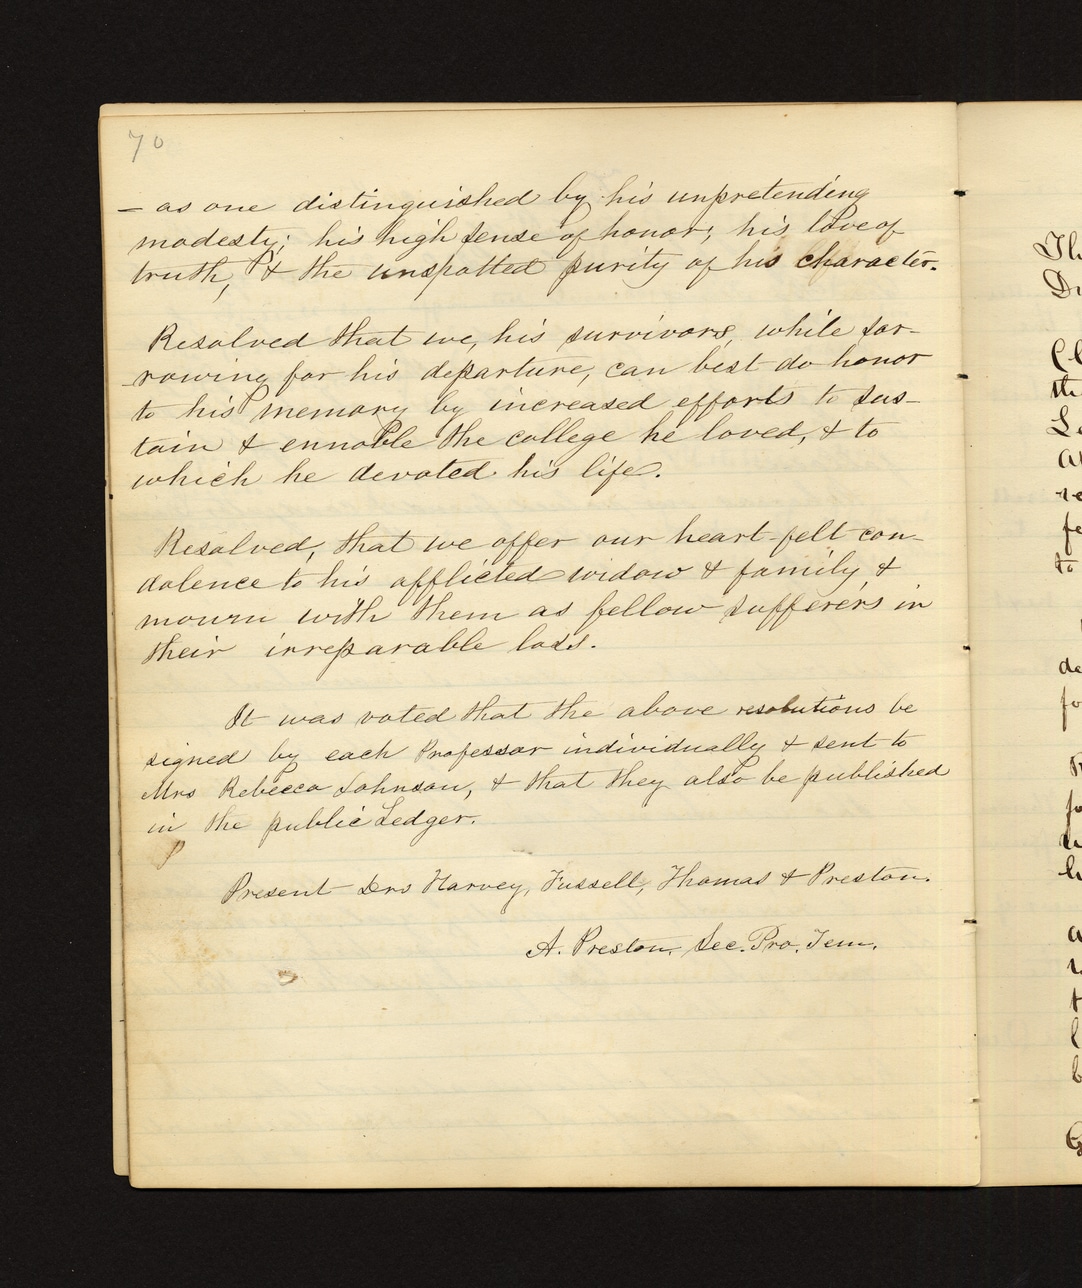 70
- as one distinguished by his unpretending
modesty; his high sense of honor; his love of
truth, & the unspotted purity of his character.
Resolved that we, his survivors, while sor-
-rowing for his departure, can best do honor
to his memory by increased efforts to sus-
tain & ennoble the college he loved, & to
which he devoted his life.
Resolved, that we offer our heart-felt con-
dolence to his afflicted widow & family, &
mourn with them as fellow sufferers in
their irreparable loss.
It was voted that the above resolutions be
signed by each Professor individually & sent to
Mrs Rebecca Johnson, & that they also be published
in the public Ledger.
Present Drs Harvey, Fussell, Thomas & Preston.
A. Preston, Sec. Pro. Tem.